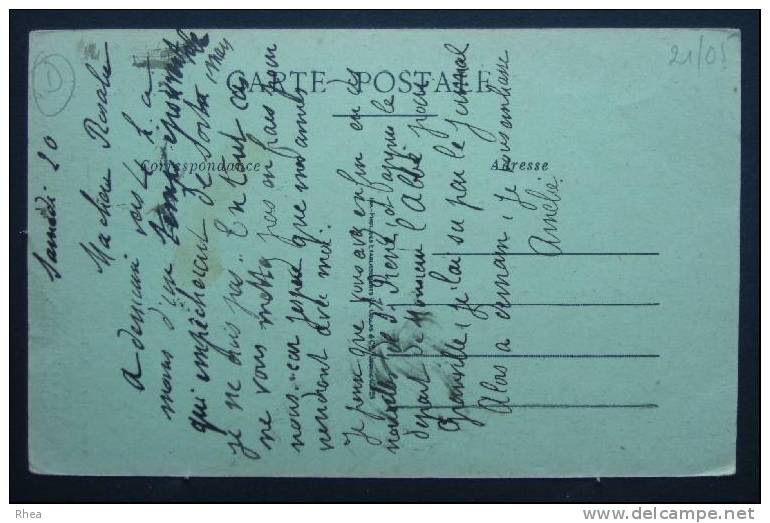 CARTE POSTALE
Correspondance
Adresse
21/05
D
Samedi 20
Ma chère Rosalie
A demain vers 4 h. a
moins d'un temps
qui empêcherait de sortir
je ne dis pas.. En tout cas
ne vous mettez pas en frais pour
nous. car j'espère que mes amies
viendront avec moi.
Je pense que vous avez enfin eu des
nouvelles de St René, et appris le
départ de Monsieur l'Abbé pour
Granville, je l'ai su par le journal
Alors a demain, je vous embrasse
Amélie.
Rhea
www.delcampe.net